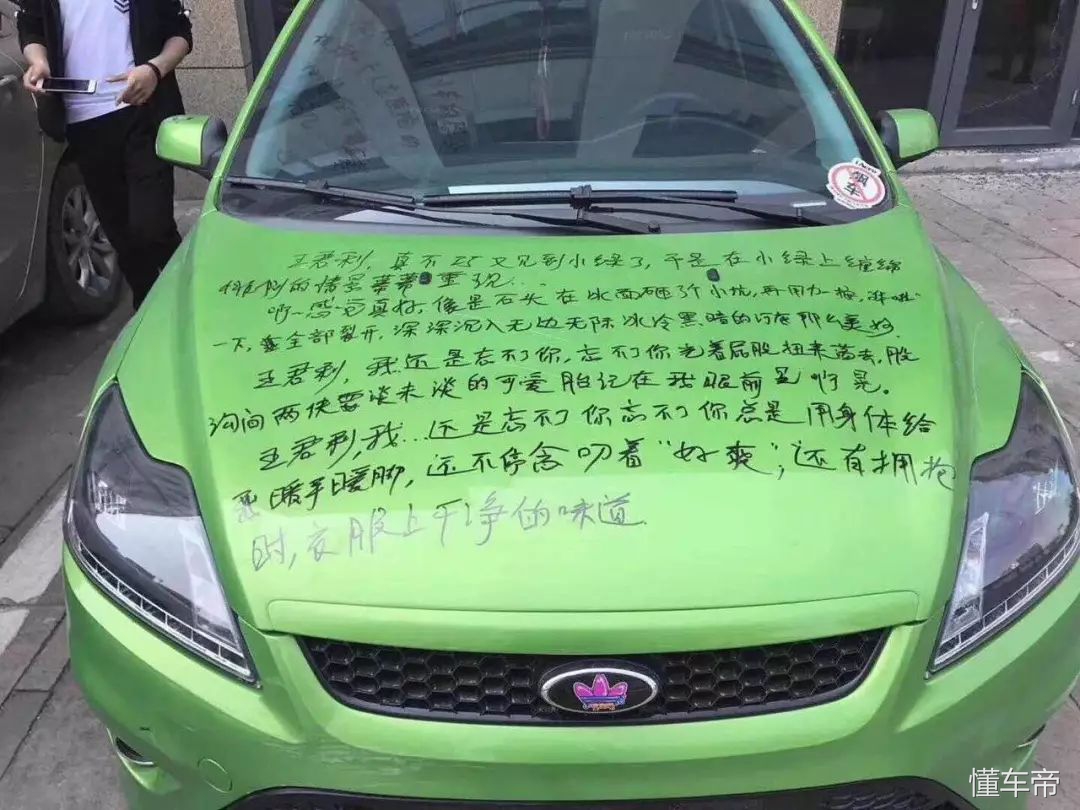 王君利，真不巧又见到小绿了，于是在小绿上缠绵
的情景 重现...
啊~感觉真好，像是石头在冰面砸了个小坑，再用力
一下，全部裂开，深深沉入无边无际冰冷黑暗的河底那么美好
王君利，我还是忘不了你，忘不了你光着屁股扭来荡去，股
沟间两侠要淡未淡的可爱胎记在我眼前晃啊晃。
王君利，我...还是忘不了你忘不了你总是用身体给
我暖手暖脚，还不停念叨着“好爽”，还有拥抱
时，衣服上干净的味道
飙车
懂车帝